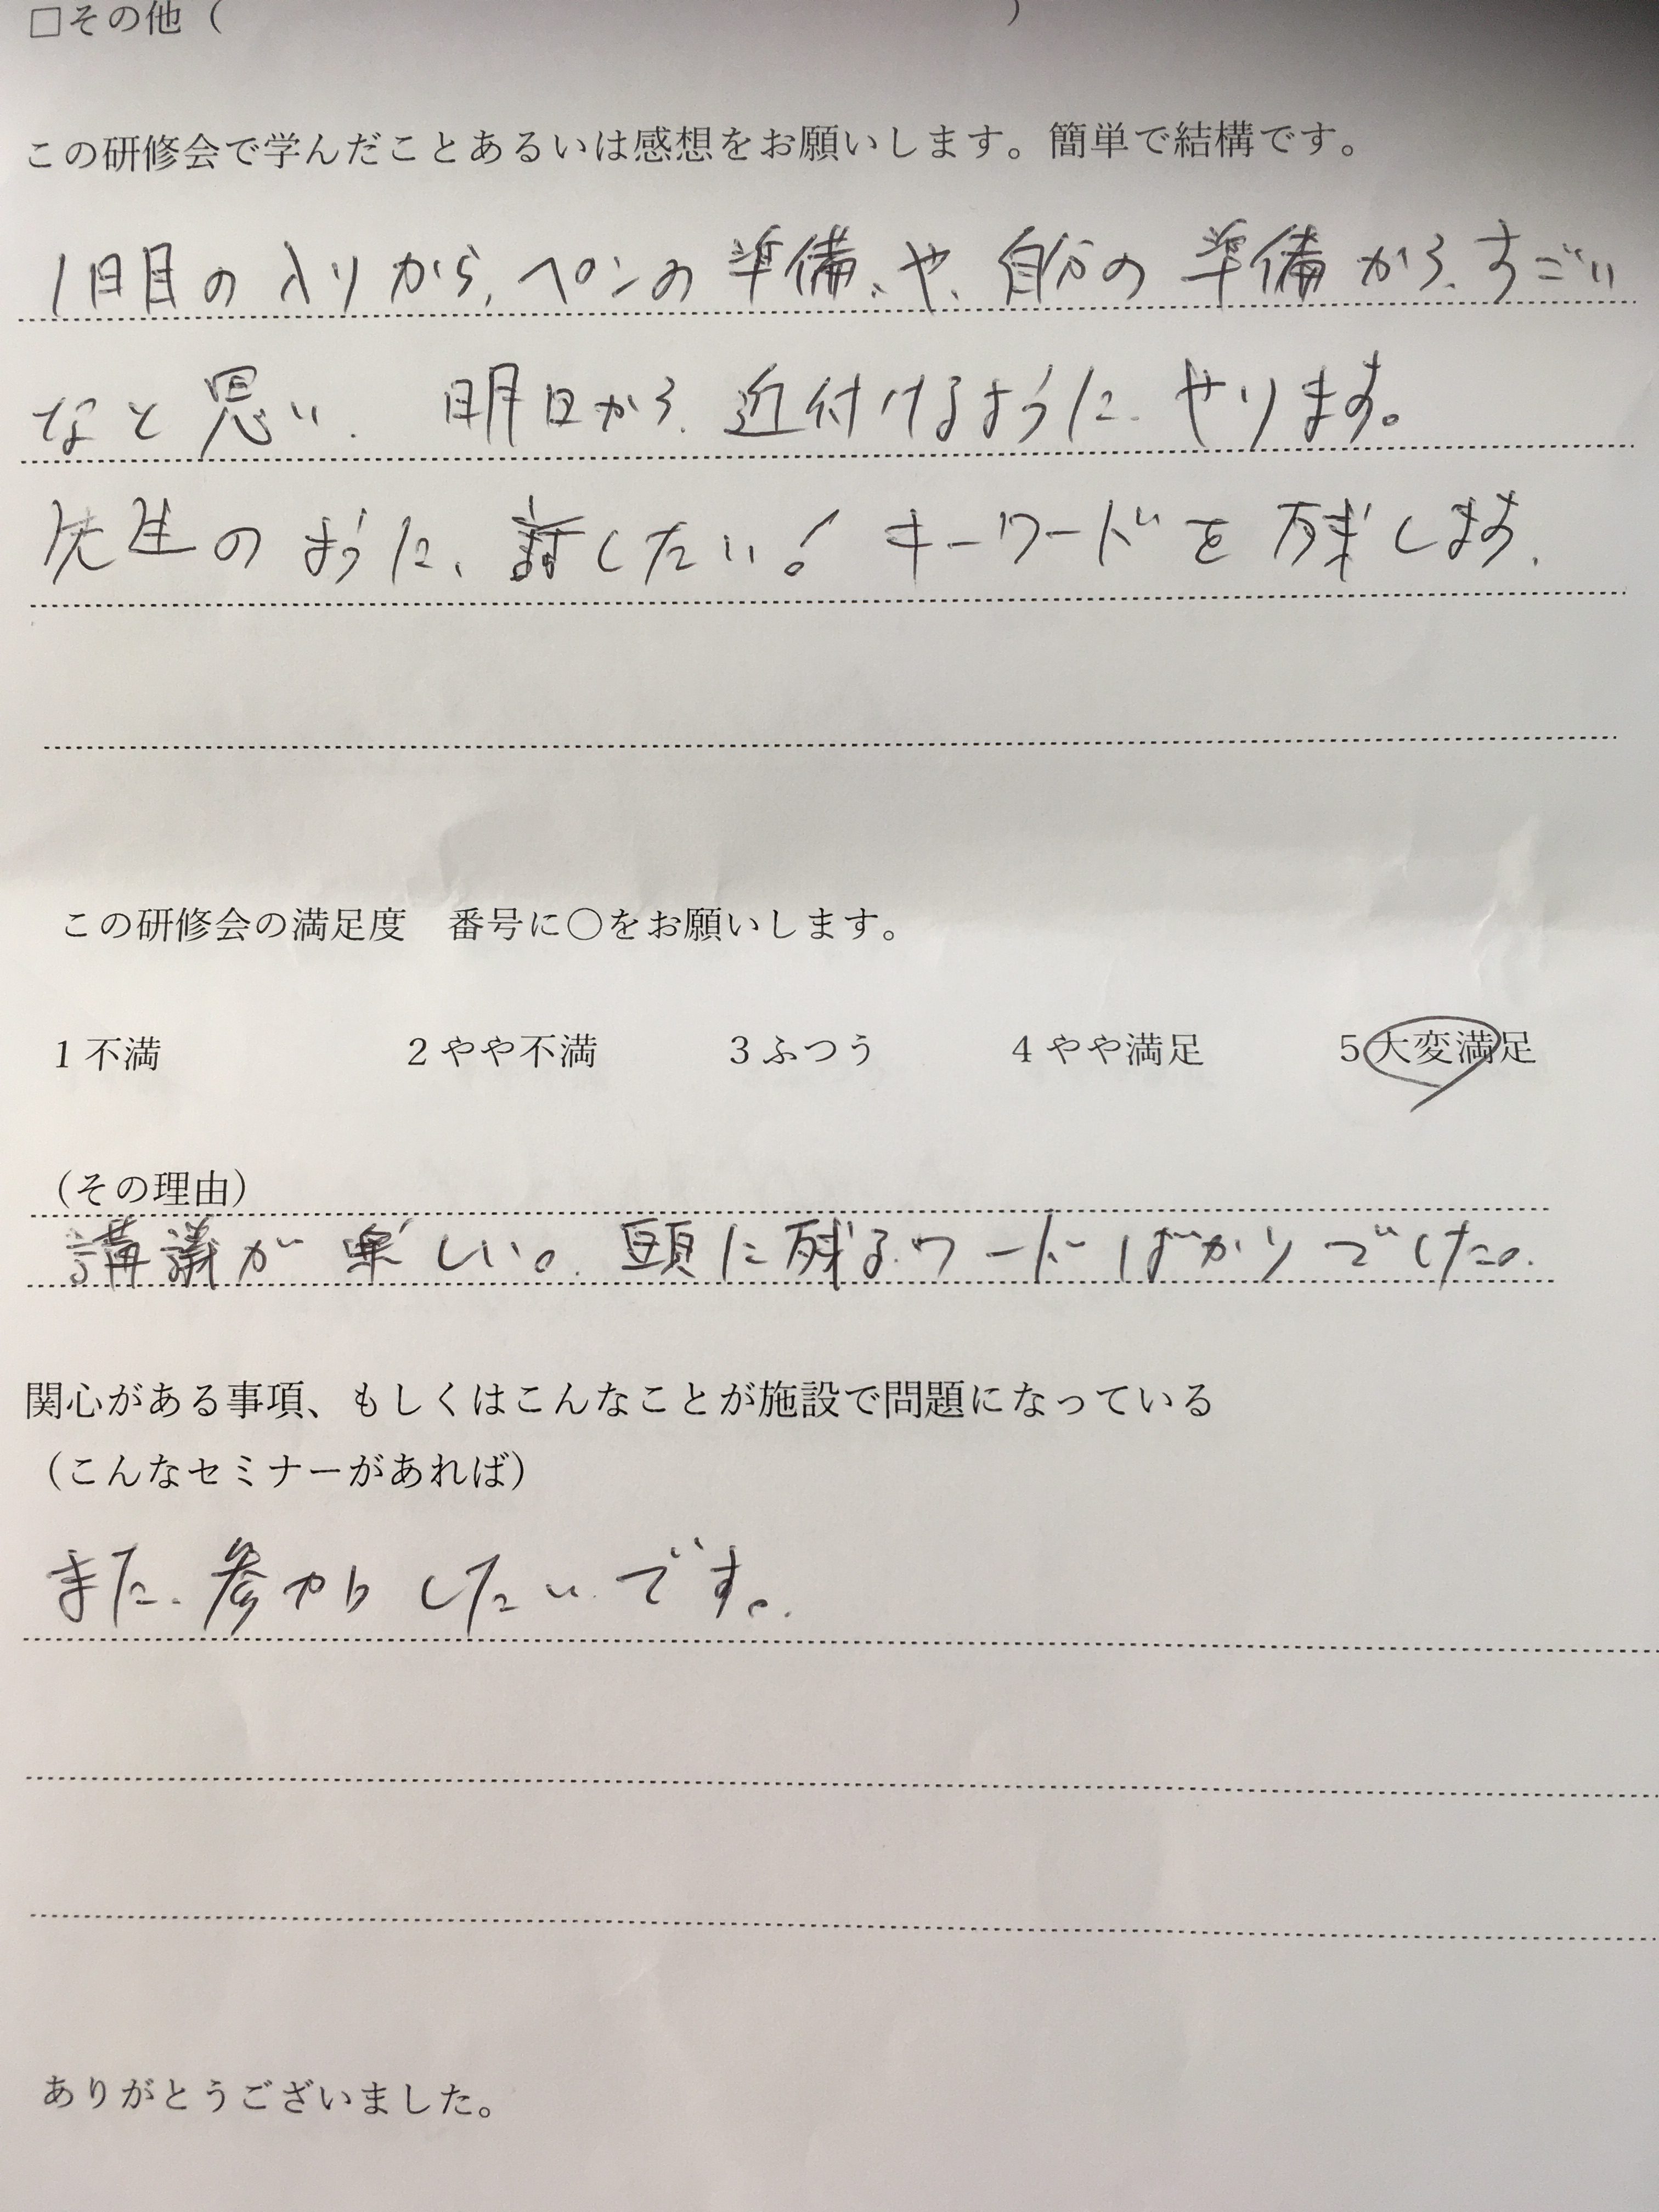 □その他（　　　　　　　　　　　　　　　　）
この研修会で学んだことあるいは感想をお願いします。簡単で結構です。
1日目の入りから、ペンの準備、や、自分の準備から、すごい
なと思い、明日から、近付けるように、やります。
先生のように、話したい！キーワードを残します。
この研修会の満足度　番号に○をお願いします。
1 不満　2 やや不満　3 ふつう　4 やや満足　5 大変満足
（その理由）
講議が楽しい。頭に残るワードばかりでした。
関心がある事項、もしくはこんなことが施設で問題になっている
（こんなセミナーがあれば）
また、参加したいです。
ありがとうございました。